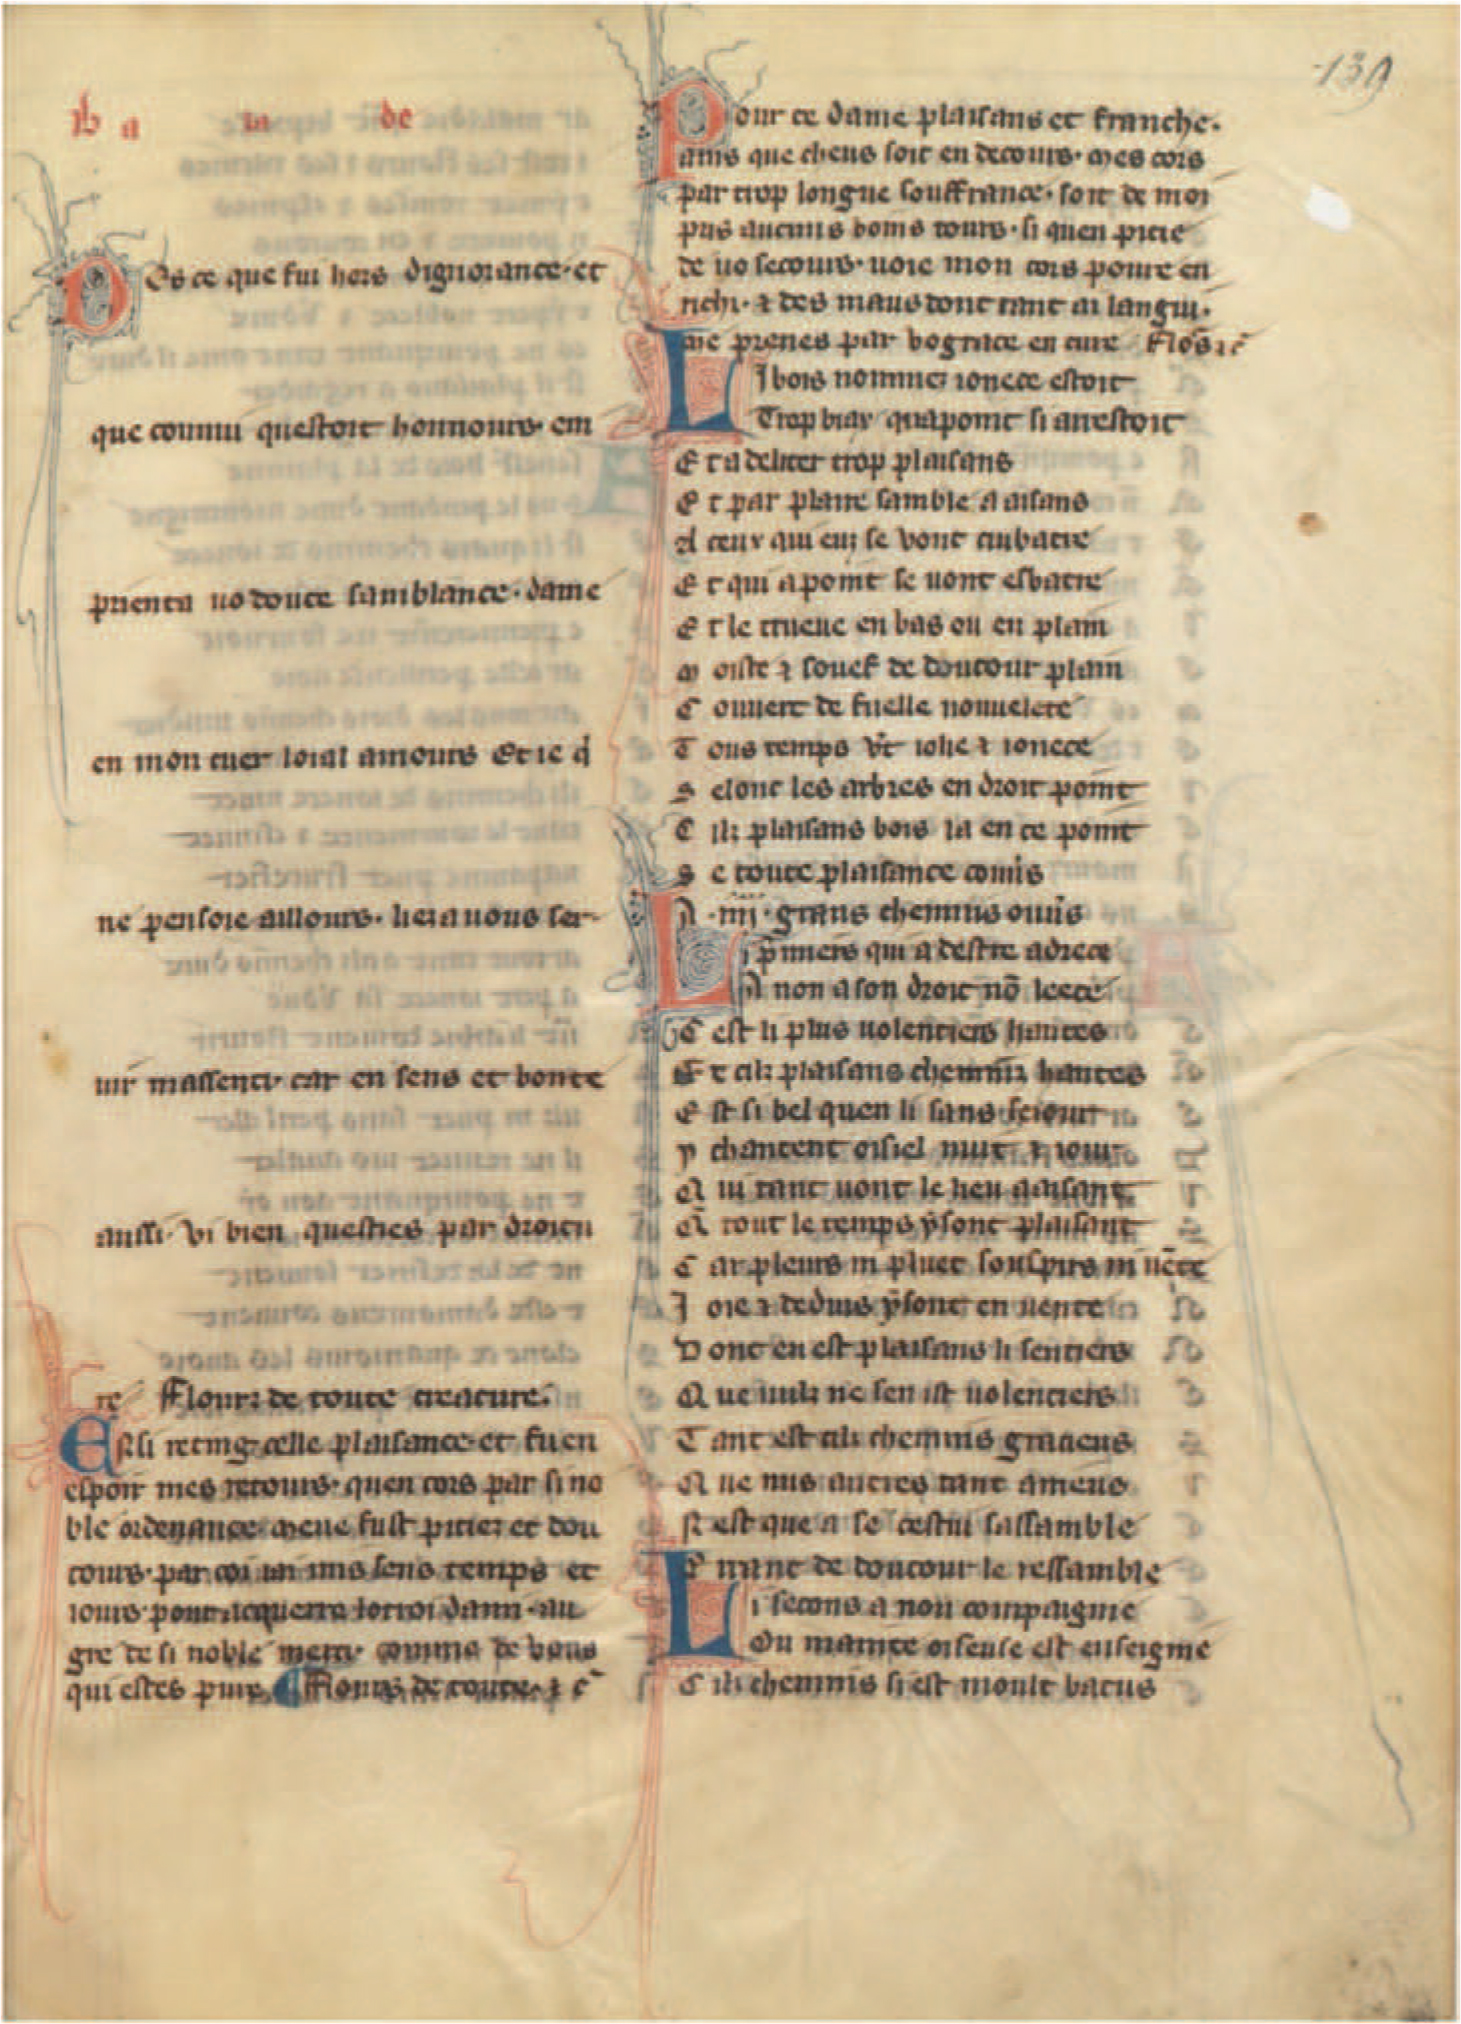 139
ba la de
Des ce que fui hors dignorance· et
que connui questoit honnours· em
prienta uo douce samblance· dame
en mon cuer loial amours Et ie q̃
ne pensoie aillours· lies a uous ser
uir massenti· car en sens et bonte
aussi· Vi bien questies par droitu
re Flours de toute creature.
Et si reting celle plaisance· et fu en
espoir mes retours· quen cors par si no
ble ordenance· meue fust pities et dou
cours· par coi un mis sens temps et
iours pour acquerre lottroi dami· au
gre de si noble merci· comme de vous
qui estes pure Flours de toute· ⁊ c̃
Pour ce dame plaisans et franche·
ains que cheus soit en decours· mes cors
par trop longue souffrance· soit de moi
pris aucuns boins tours· si quen pitie
de uo secours· uoie mon cors poure en
richi· ⁊ des maus dont tant ai langui·
me prenes par vo grace en cure Flo᷑s ⁊ c̃
Li bois nommez ionece estoit
Trop biax qua point si arrestoit
Et a deliter trop plaisans
Et par plante samble aaisans
A ceux qui eus se vont enbatre
Et qui a point se uont esbatre
Et le trueue en bas ou en plain
Moiste ⁊ souef de doucour plain
Couuert de fuelle nouuelete
Tous temps vert iolie ⁊ ionece
Selonc les arbres en droit point
Cilz plaisans bois la en ce point
De toute plaisance comis
A .iiij. grans chemins ouuis
Li p̃miers qui a destre adrece
A non a son droit nõ leece
Cest li plus uolentiers hantes
Et cilz plaisans chemins hantes
Est si bel quen li sans seiour
Y chantent oisiel nuit ⁊ iour
Qui tant uont le lieu aaisant
Q̃ tout le temps ỹ sont plaisant
Car pleurs ni pluet souspirs ni uẽte
Joie ⁊ deduis ỹ sont en uente
Dont en est plaisans li sentiers
Que nulz ne sen ist uolentiers
Tant est cilz chemins gracieus
Que nus autres tant amieus
Nest que a se cestui sassamble
Quant de doucour le ressamble
Li secons a non compaignie
Ou mainte oiseuse est enseignie
Cilz chemins si est moult batus